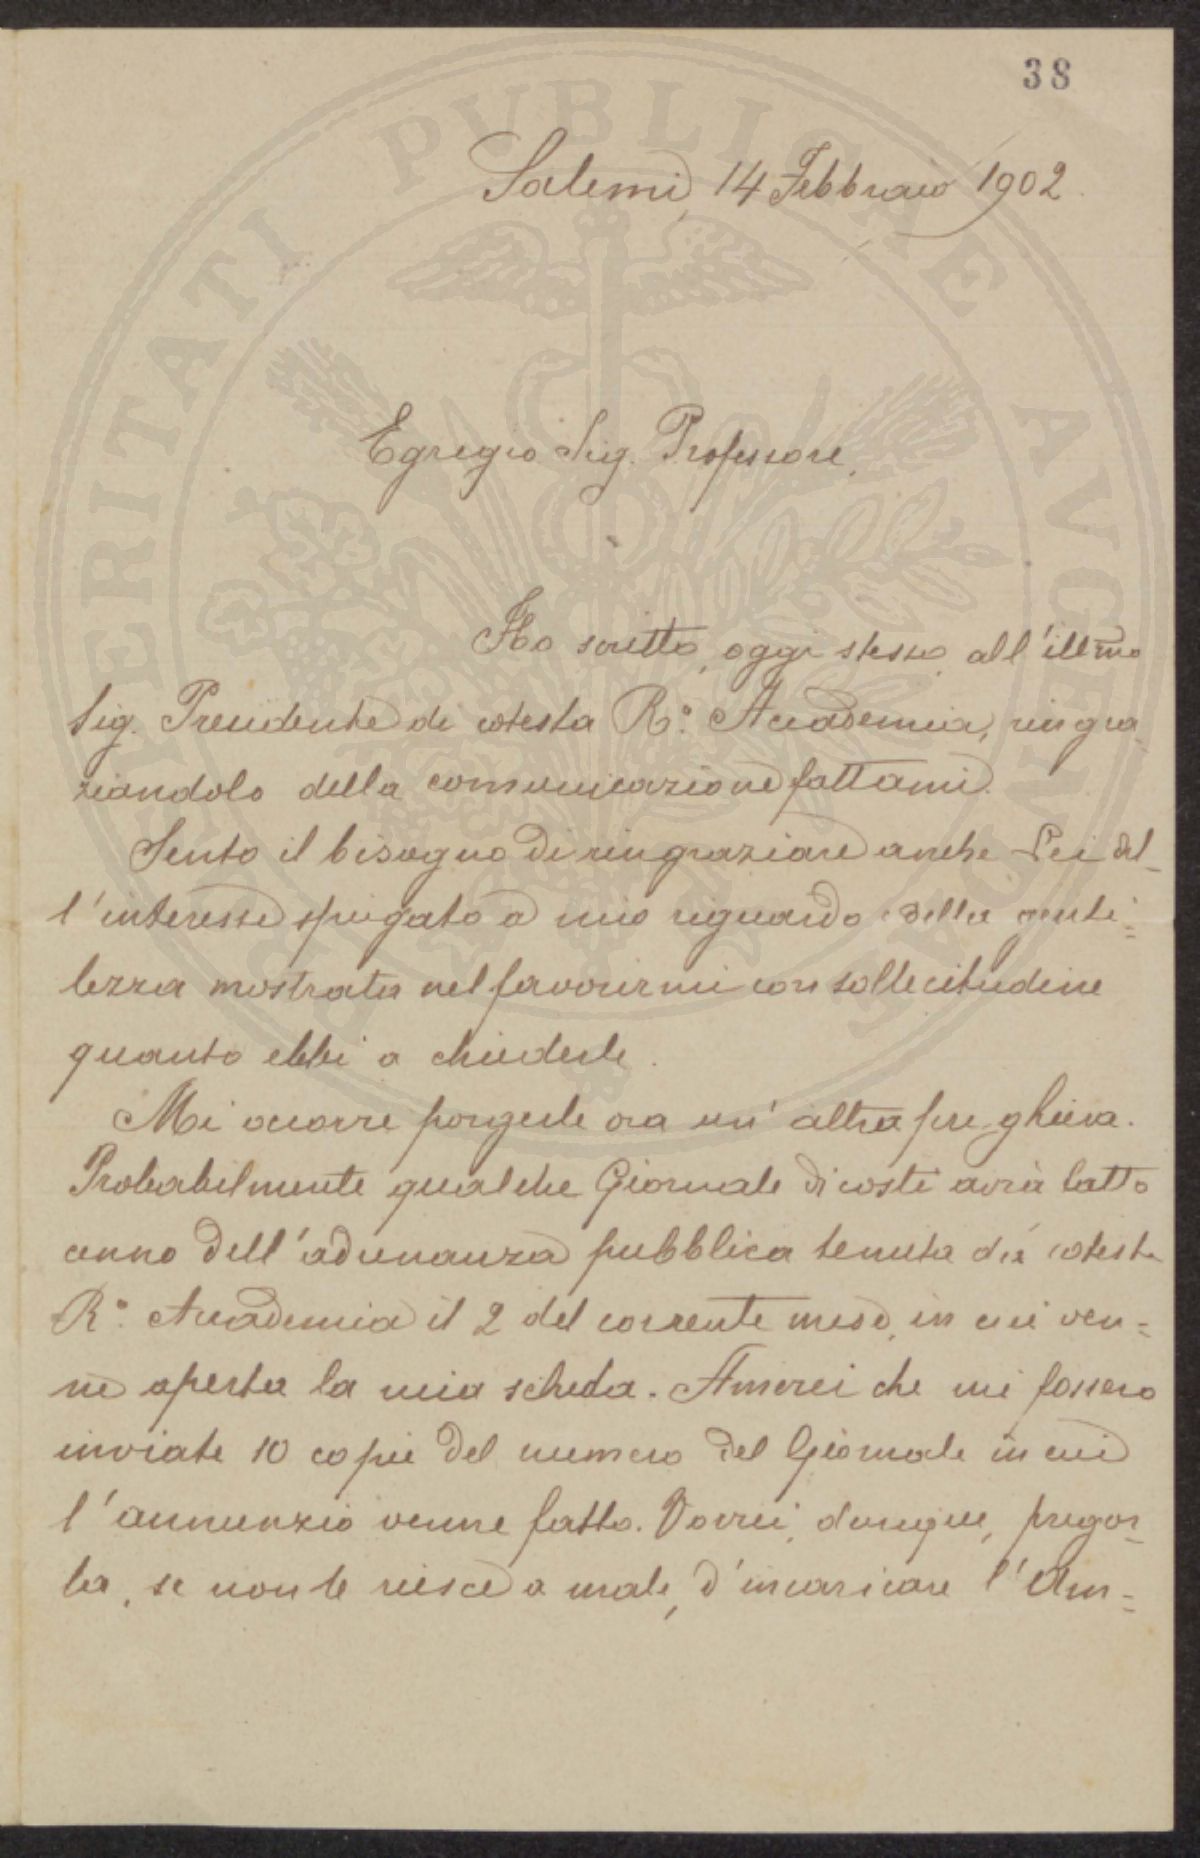 38
Salemi, 14 Febbraio 1902.
Egregio Sig. Professore,
Ho scritto, oggi stesso, all'illmo
Sig. Presidente di cotesta R.a Accademia, ringra-
ziandolo della comunicazione fattami.
Sento il bisogno di ringraziare anche Lei del-
l'interesse spiegato a mio riguardo e della genti=
lezza mostrata nel favorirmi con sollecitudine
quanto ebbi a chiederle.
Mi occorre porgerle ora un'altra preghiera.
Probabilmente qualche Giornale di costì avrà fatto
cenno dell'adunanza pubblica tenuta da cotesta
R.a Accademia il 2 del corrente mese, in cui ven=
ne aperta la mia scheda. Amerei che mi fossero
inviate 10 copie del numero del Giornale in cui
l'annunzio venne fatto. Vorrei, dunque, pregar-
la, se non le riesce a male, d'incaricare l'Am=
PUBLICAE AUGENDAE